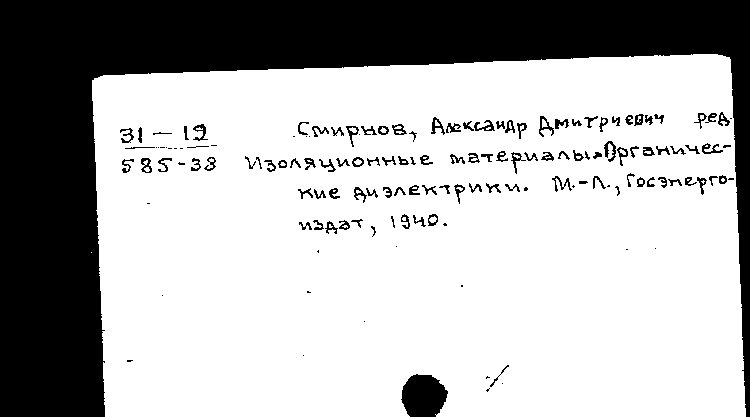 31-12 Смирнов, Александр Дмитриевич ред.
585-38 Изоляционные материалы. Органичес-
кие диэлектрики. М.-Л., Госэнерго-
издат, 1940.